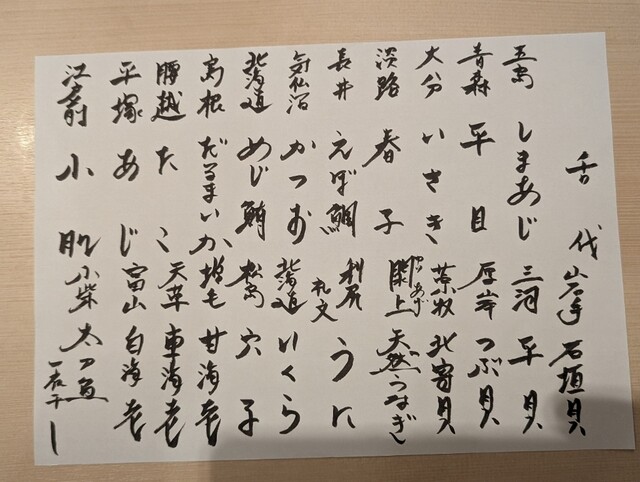 舌代
五島 しまあじ
青森 平目
大分 いさき
淡路 春子
長井 えぼ鯛
気仙沼 かつお
北海道 めじ鮪
島根 だるまいか
腰越 たこ
平塚 あじ
江戸前 小肌
岩手 石垣貝
三河 平貝
厚岸 つぶ貝
苫小牧 北寄貝
ゆりあげ
閖上 天然うなぎ
利尻 礼文 うに
北海道 いくら
松島 穴子
増毛 甘海老
天草 車海老
富山 白海老
小柴 太刀魚 一夜干し